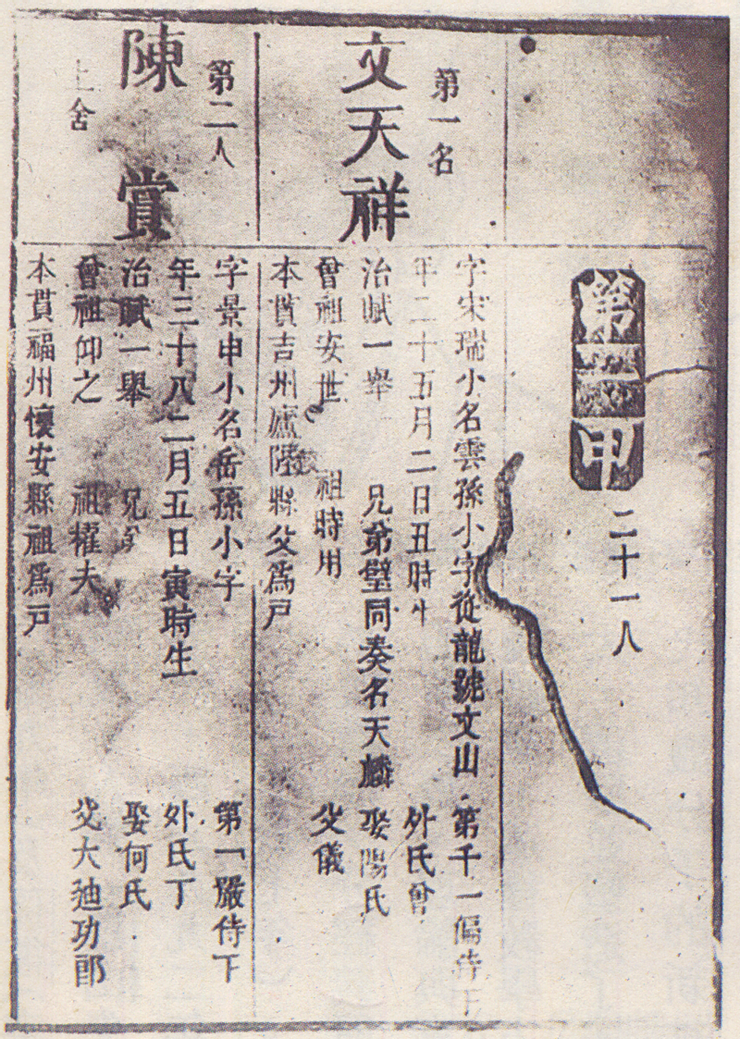 第一甲 二十一人
第一名
文天祥
字宋瑞小名雲孫小字從龍號文山 第千一偏侍下
年二十五月二日丑時生 外氏曾
治賦一舉 兄弟璧同奏名天麟 娶歐陽氏
曾祖安世 祖時用 父儀
本貫吉州廬陵縣父爲戶
第二人
陳賞
上舍
字景申小名岳孫小字 第一嚴侍下
年三十八二月五日寅時生 外氏丁
治賦一舉 兄弟 娶何氏
曾祖仰之 祖權夫 父大迪功郎
本貫福州懷安縣祖爲戶